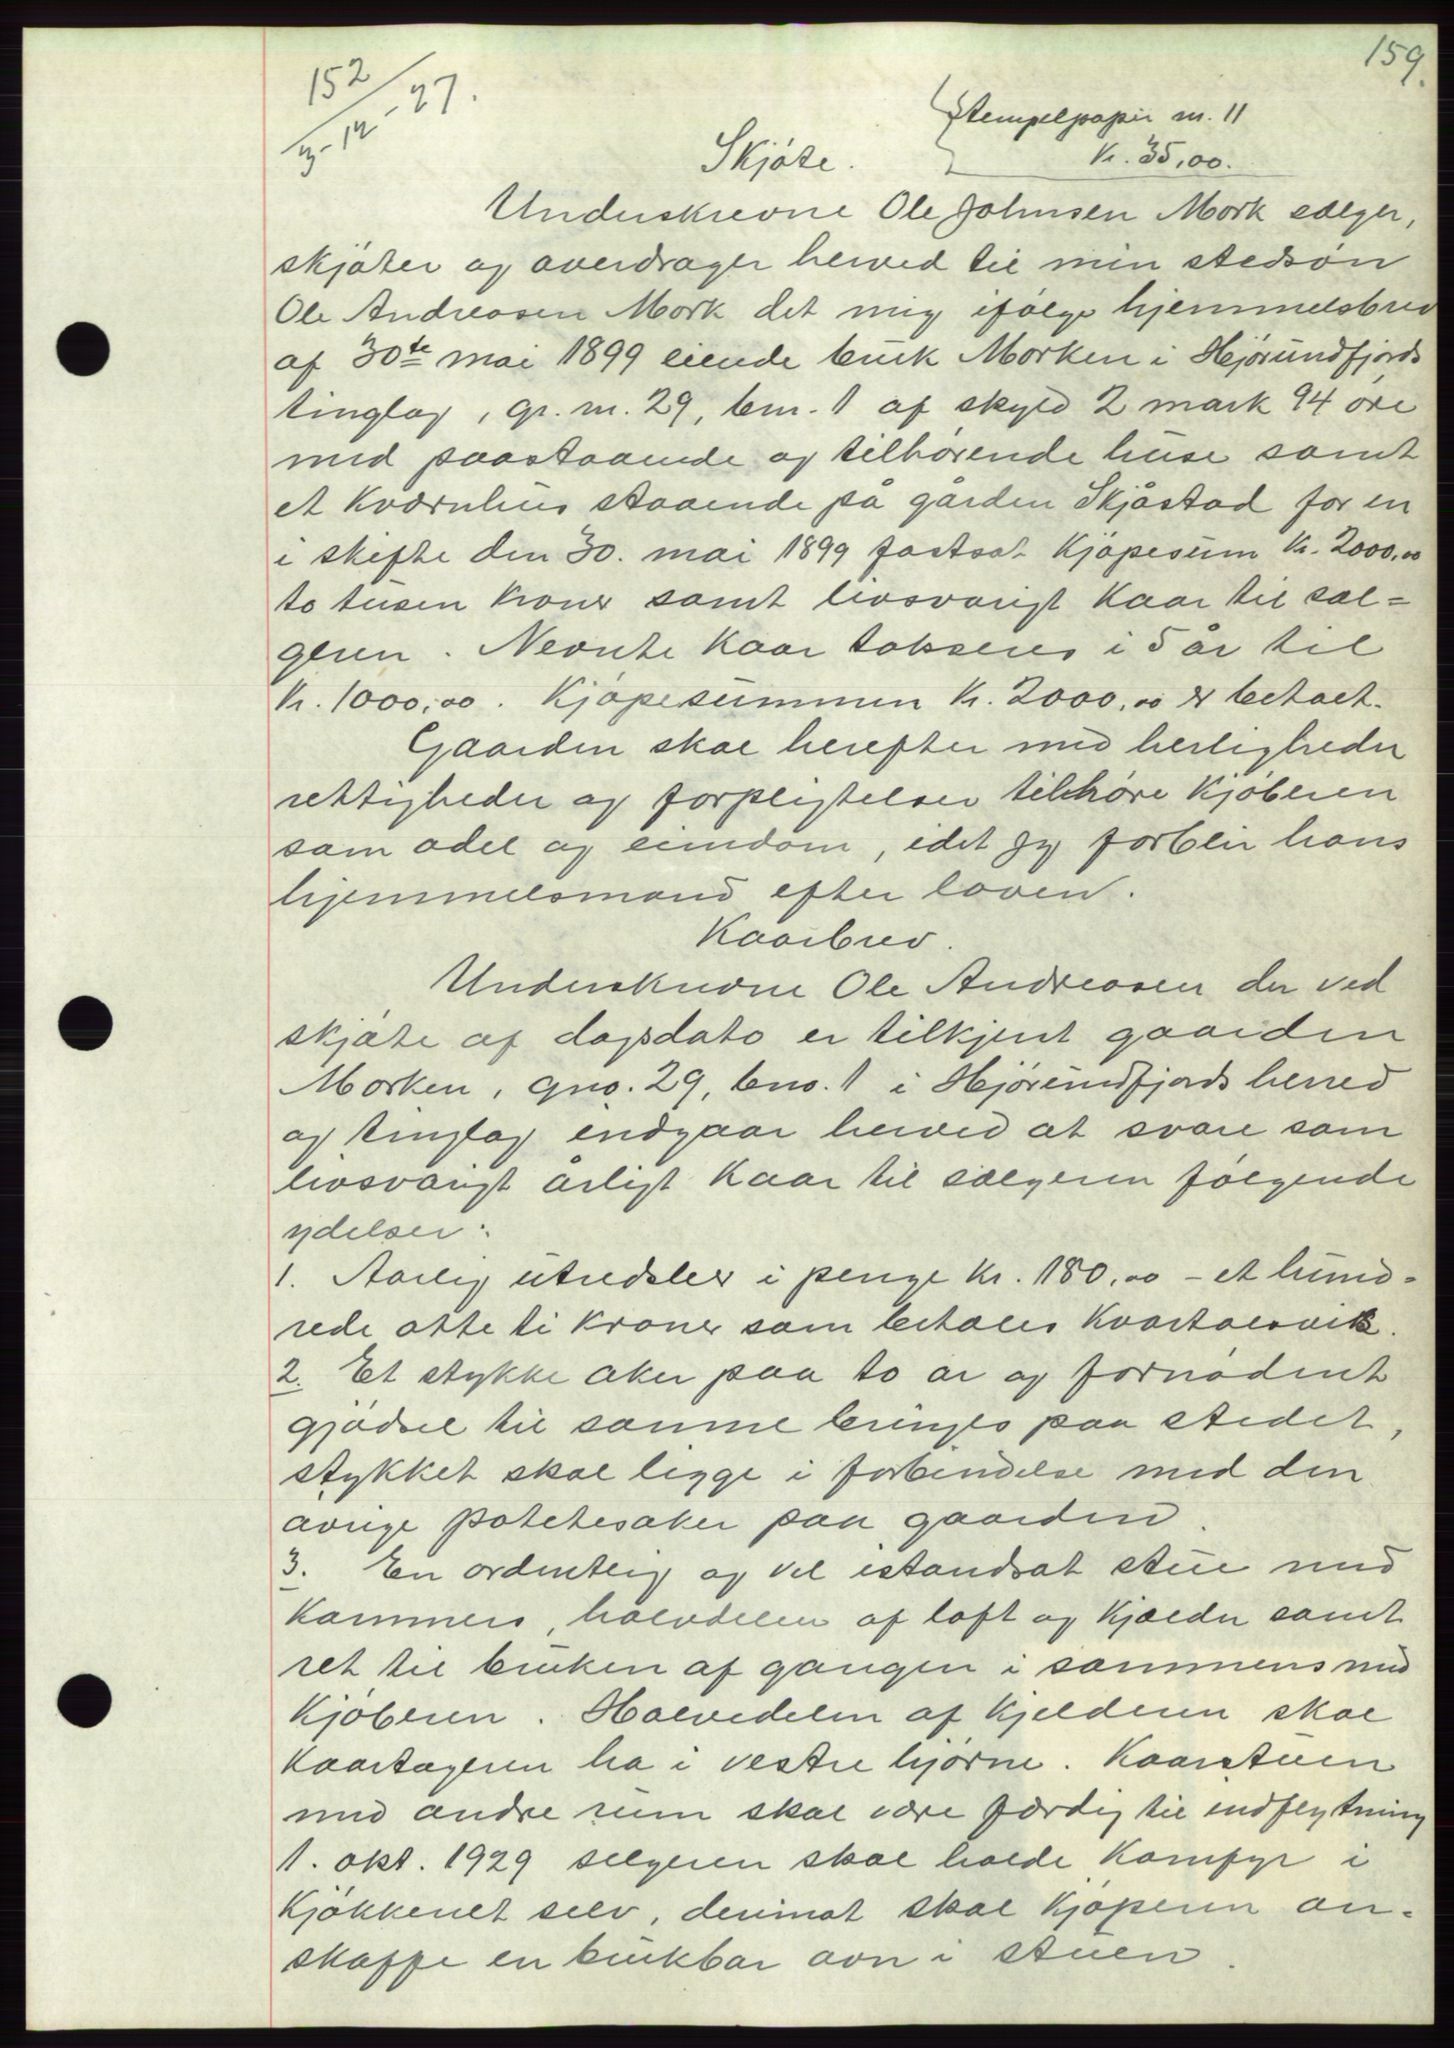 159.
152
3-12-27.
Stempelpapir nr. 11
Kr. 35,00.
Skjøte.
Underskrevne Ole Johnsen Mork sælger,
skjøter og averdrager herved til min stedsøn
Ole Andreasen Mork det mig ifølge hjemmelsbrev
af 30te mai 1899 eiende bruk Morken i Hjørundfjords
tinglag, gr. nr. 29, bnr. 1 af skyld 2 mark 94 øre
med paastaaende og tilhørende huse samt
et kværnhus staaende på gården Skjåstad for en
i skifte den 30. mai 1899 fastsat kjøpesum kr. 2000,00
to tusen kroner samt livsvarigt kaar til sæl=
geren. Nevnte kaar takseres i 5 år til
kr. 1000,00. Kjøpesummen kr. 2000,00 er betalt.
Gaarden skal herefter med herligheder
rettigheder og forpligtelser tilhøre kjøberen
som odel og eiendom, idet jeg forblir hans
hjemmelsmand efter loven.
Kaarbrev.
Underskrevne Ole Andreasen der ved
skjøte af dagsdato er tilkjent gaarden
Morken, gno. 29, bno. 1 i Hjørundfjords herred
og tinglag indgaar herved at svare som
livsvarigt årligt kaar til sælgeren følgende
ydelser:
1. Aarlig utredsler i penge kr. 180,00 - et hund=
rede otte ti kroner som betales kvartalsvis.
2. Et stykke aker paa to ar og fornødent
gjødsel til samme bringes paa stedet,
stykket skal ligge i forbindelse med den
øvrige potetesaker paa gaarden.
3. En ordentlig og vel istandsat stue med
kammers, halvdelen af loft og kjælder samt
ret til bruken af gangen i sammens med
kjøberen. Halvedelen af kjelderen skal
kaartageren ha i vestre hjørne. Kaarstuen
med andre rum skal være færdig til indflytning
1. okt. 1929 selgeren skal holde komfyr i
kjøkkenet selv, derimot skal kjøperen an=
skaffe en brukbar ovn i stuen.